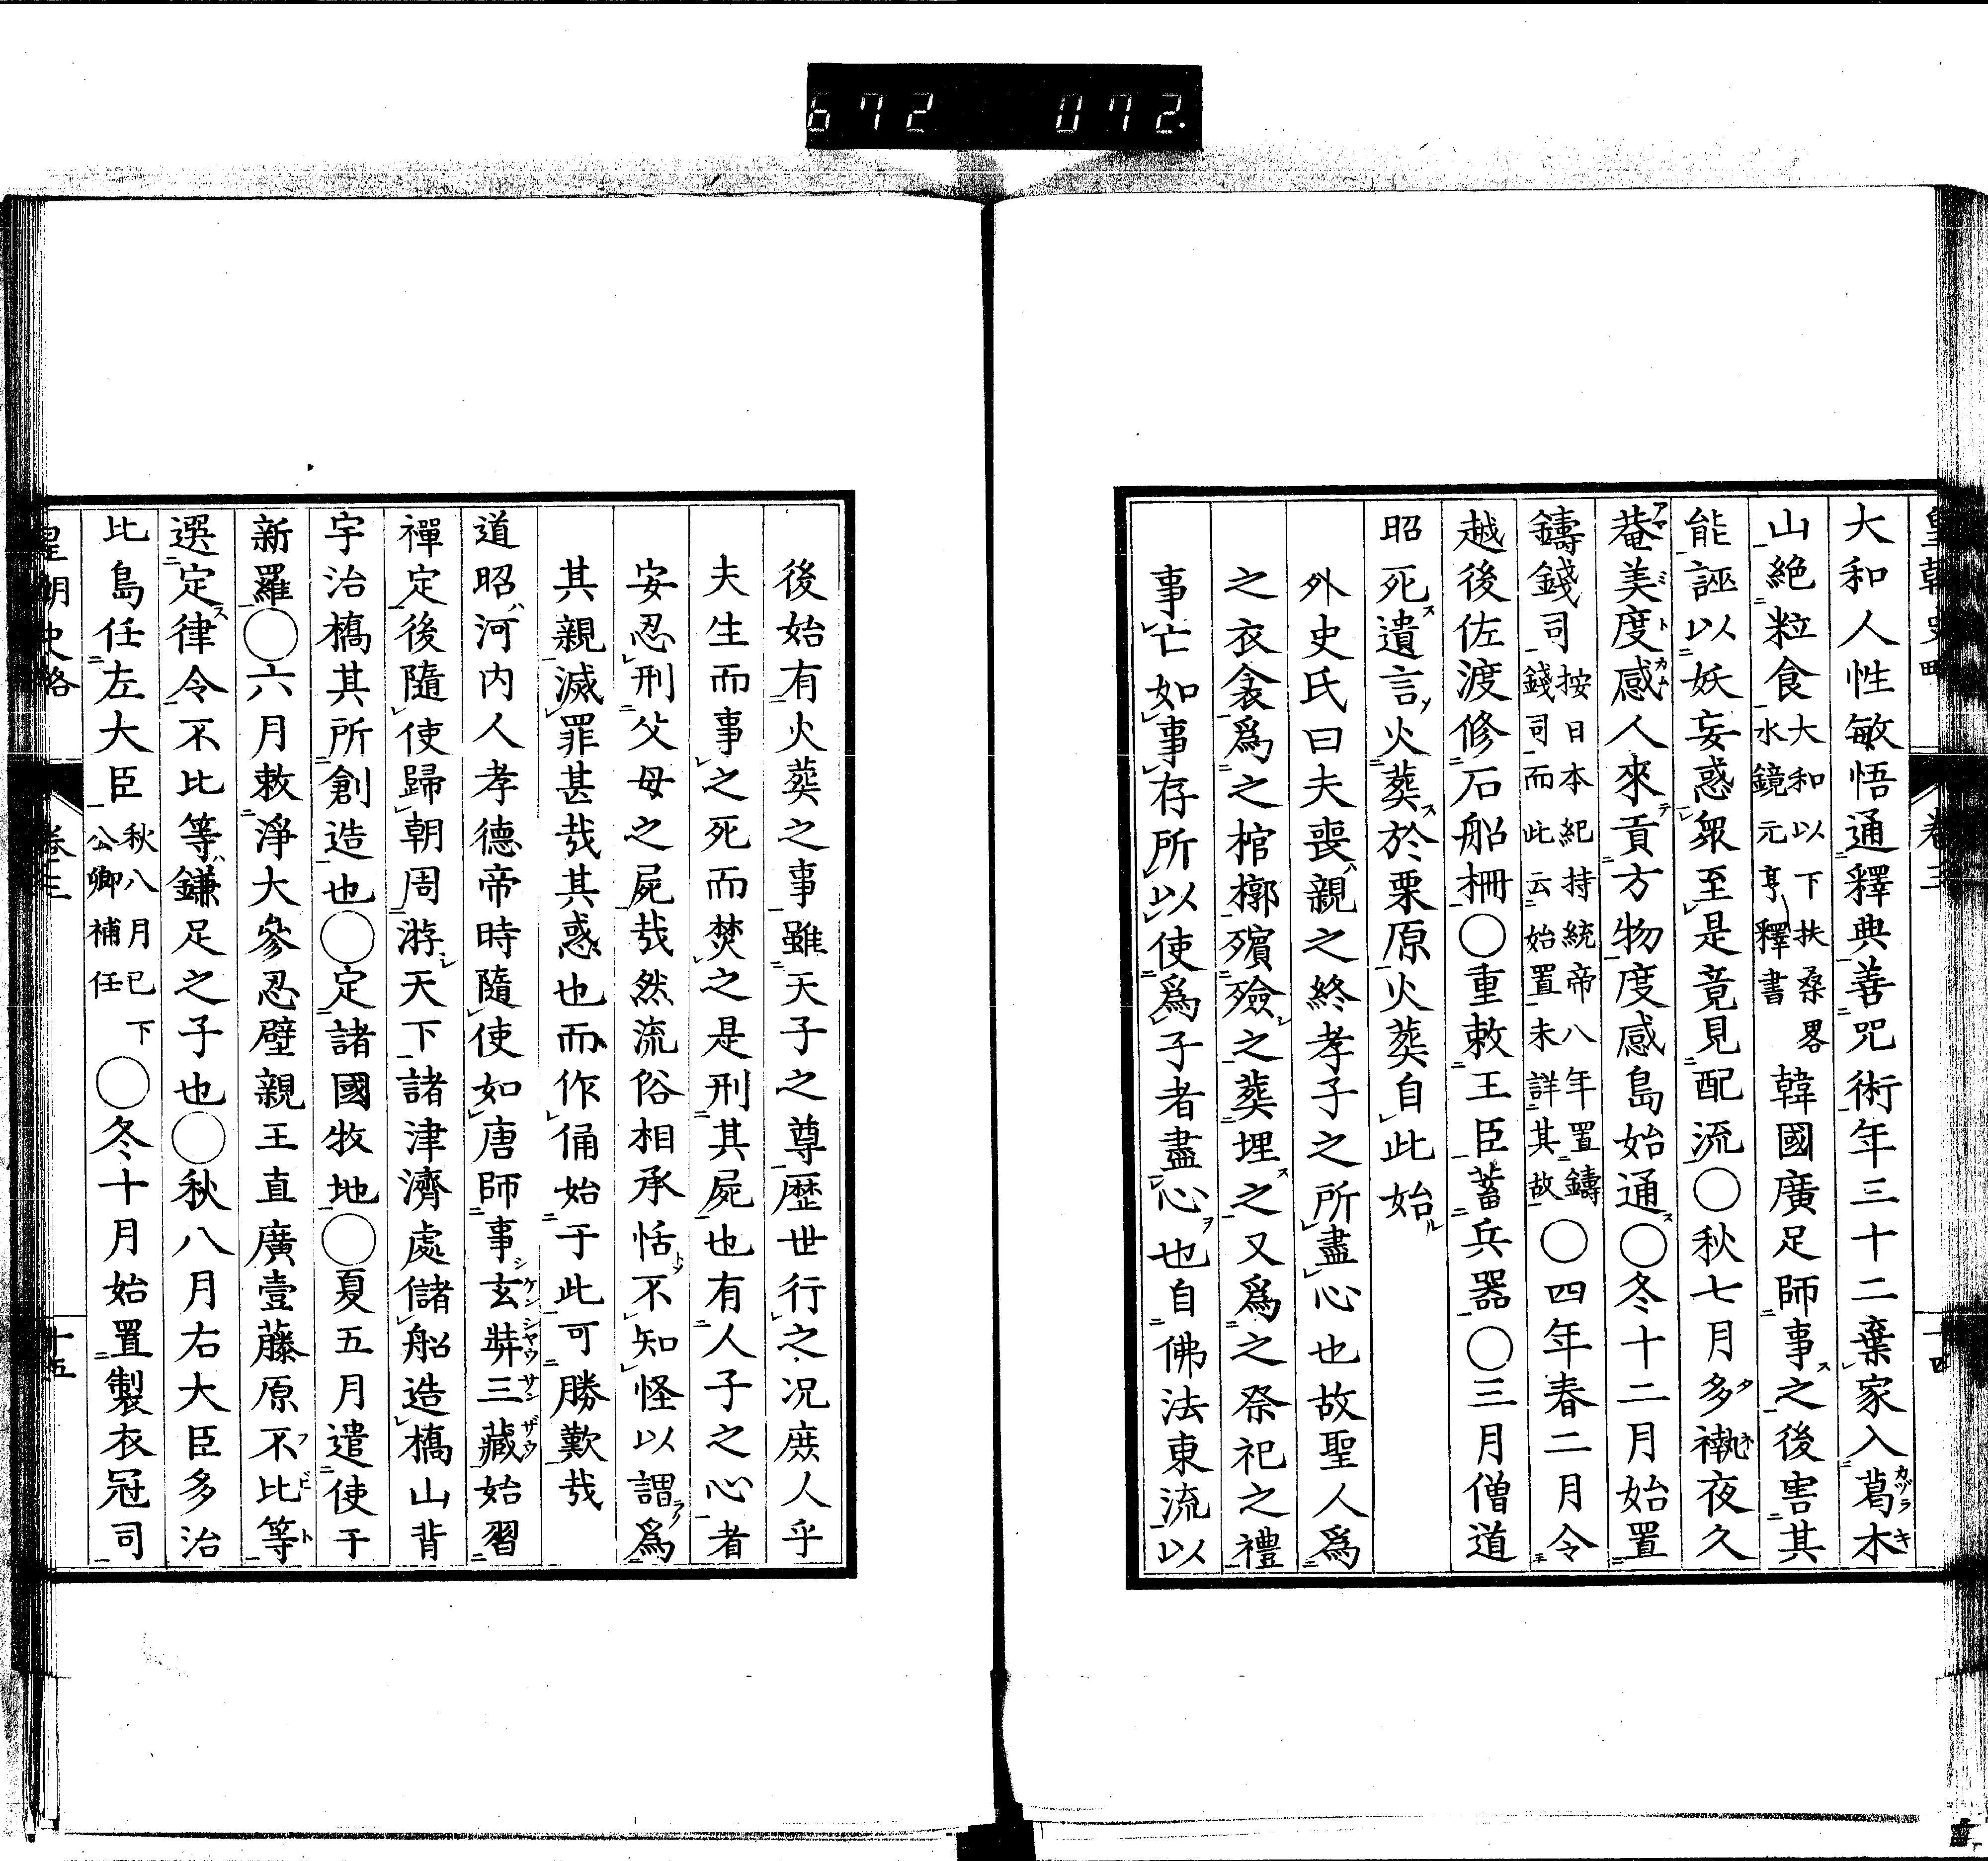 672 072.
皇朝史略 卷三 十四
大和人性敏悟通釋典善咒術年三十二棄家入葛木
山絶粒食大和以下扶桑畧水鏡元亨釋書韓國廣足師事之後害其
能誣以妖妄惑衆至是竟見配流〇秋七月多褹夜久
菴美度感人來貢方物度感島始通〇冬十二月始置
鑄錢司按日本紀持統帝八年置鑄錢司而此云始置未詳其故〇四年春二月令
越後佐渡修石船柵〇重敕王臣蓄兵器〇三月僧道
昭死遺言火葬於栗原火葬自此始
外史氏曰夫喪親之終孝子之所盡心也故聖人爲
之衣衾爲之棺槨殯殮之葬埋之又爲之祭祀之禮
事亡如事存所以使爲子者盡心也自佛法東流以
後始有火葬之事雖天子之尊歴世行之况庶人乎
夫生而事之死而焚之是刑其屍也有人子之心者
安忍刑父母之屍哉然流俗相承恬不知怪以謂爲
其親滅罪甚哉其惑也而作俑始于此可勝歎哉
道昭河内人孝德帝時隨使如唐師事玄弉三藏始習
禪定後隨使歸朝周游天下諸津濟處儲船造橋山背
宇治橋其所創造也〇定諸國牧地〇夏五月遣使于
新羅〇六月敕淨大參忍壁親王直廣壹藤原不比等
選定律令不比等鎌足之子也〇秋八月右大臣多治
比島任左大臣秋八月已下公卿補任〇冬十月始置製衣冠司
皇朝史略 卷三 十五